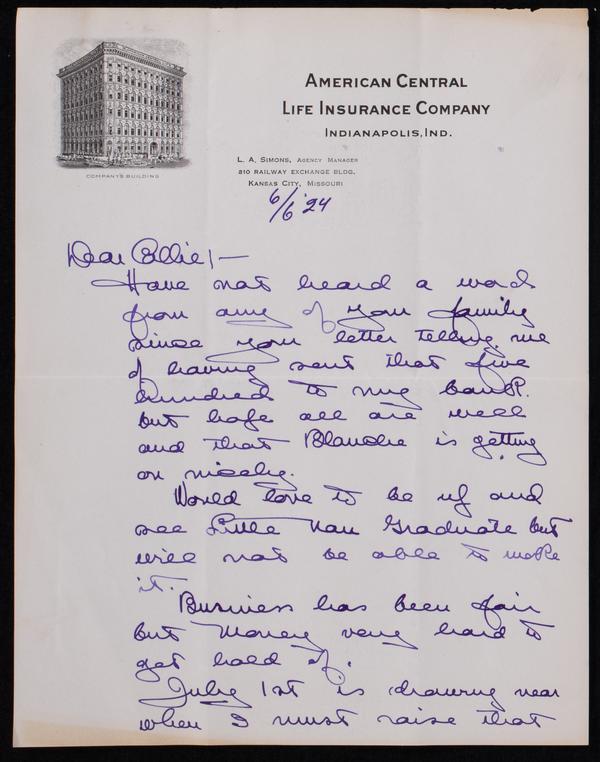 AMERICAN CENTRAL
LIFE INSURANCE COMPANY
INDIANAPOLIS, IND.
COMPANY'S BUILDING
L. A. SIMONS, AGENCY MANAGER
810 RAILWAY EXCHANGE BLDG.
KANSAS CITY, MISSOURI
6/6 '24
Dear Ollie! —
Have not heard a word
from any of your family
since your letter telling me
of having sent that five
hundred to my bank.
but hope all are well
and that Blanche is getting
on nicely.
Would love to be up and
see Little Nan Graduate but
will not be able to make
it.
Business has been fair
but Money very hard to
get hold of.
July 1st is drawing near
when I must raise that